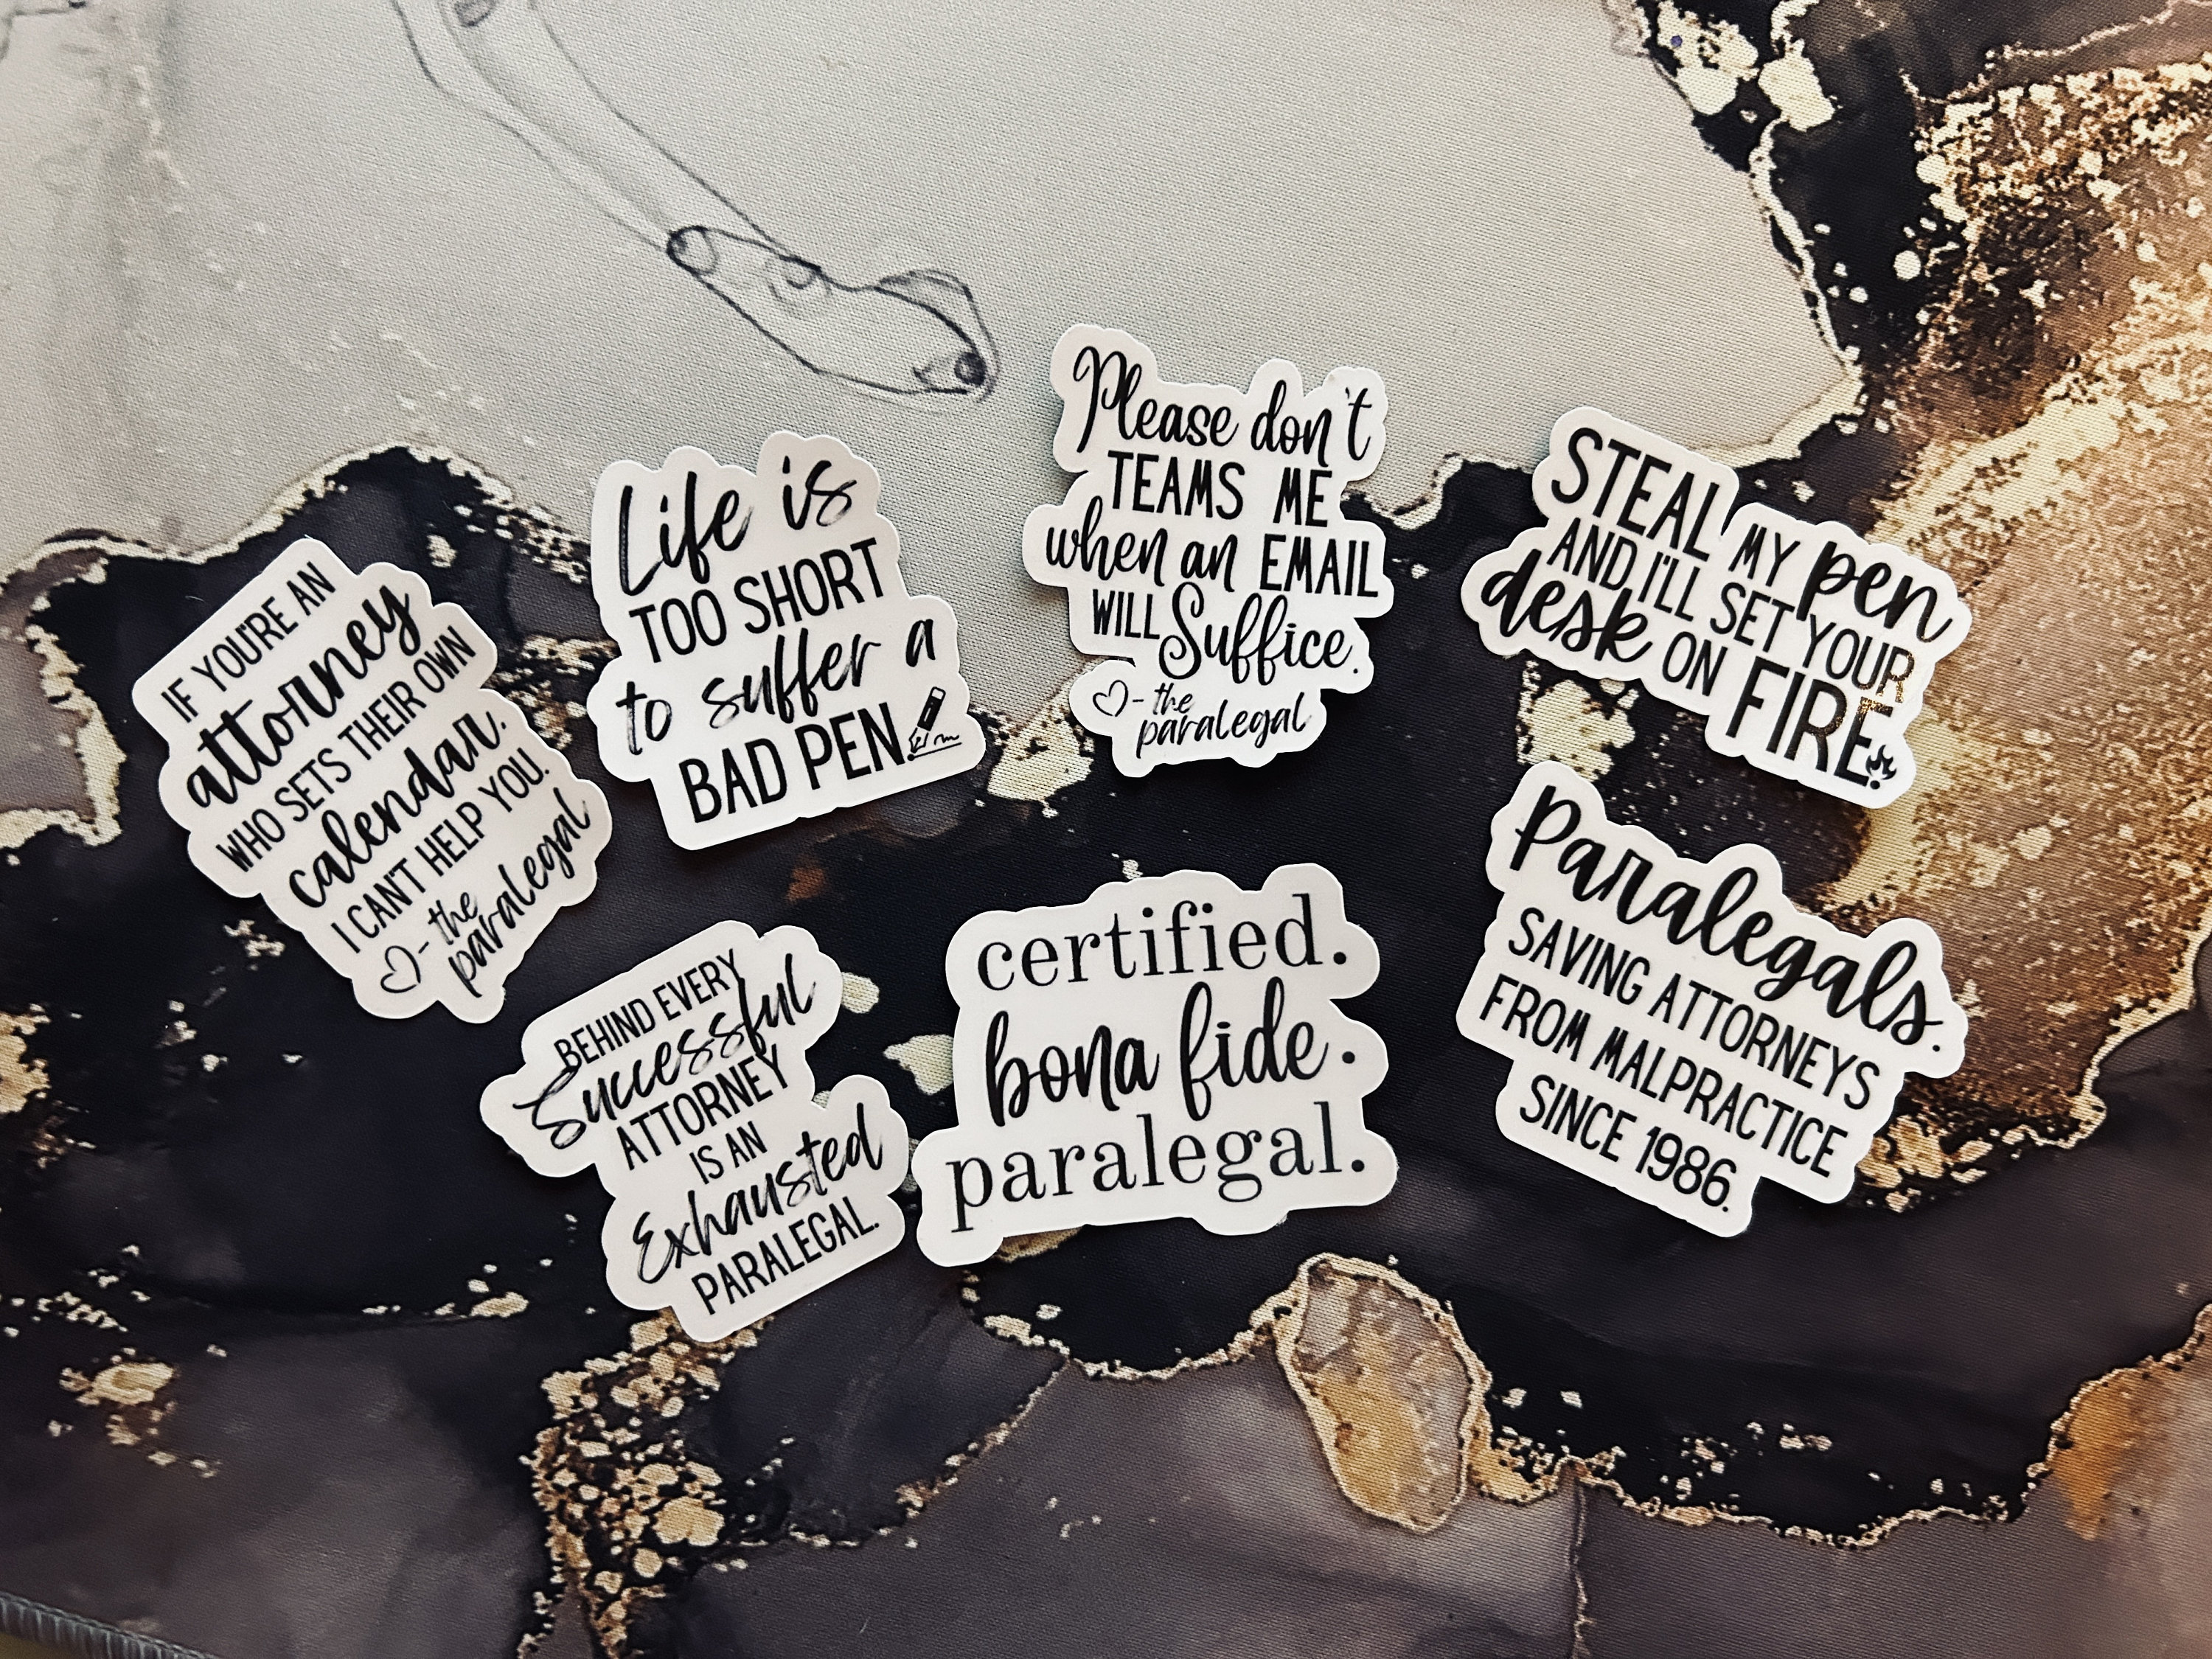 IF YOU'RE AN
attorney
WHO SETS THEIR OWN
calendar.
I CAN'T HELP YOU.
- the
paralegal
Life is
TOO SHORT
to suffer a
BAD PEN.
Please don't
TEAMS ME
when an EMAIL
WILL Suffice.
- the
paralegal
STEAL MY pen
AND I'LL SET YOUR
desk ON FIRE.
BEHIND EVERY
Successful
ATTORNEY
IS AN
Exhausted
PARALEGAL.
certified.
bona fide.
paralegal.
Paralegals.
SAVING ATTORNEYS
FROM MALPRACTICE
SINCE 1986.